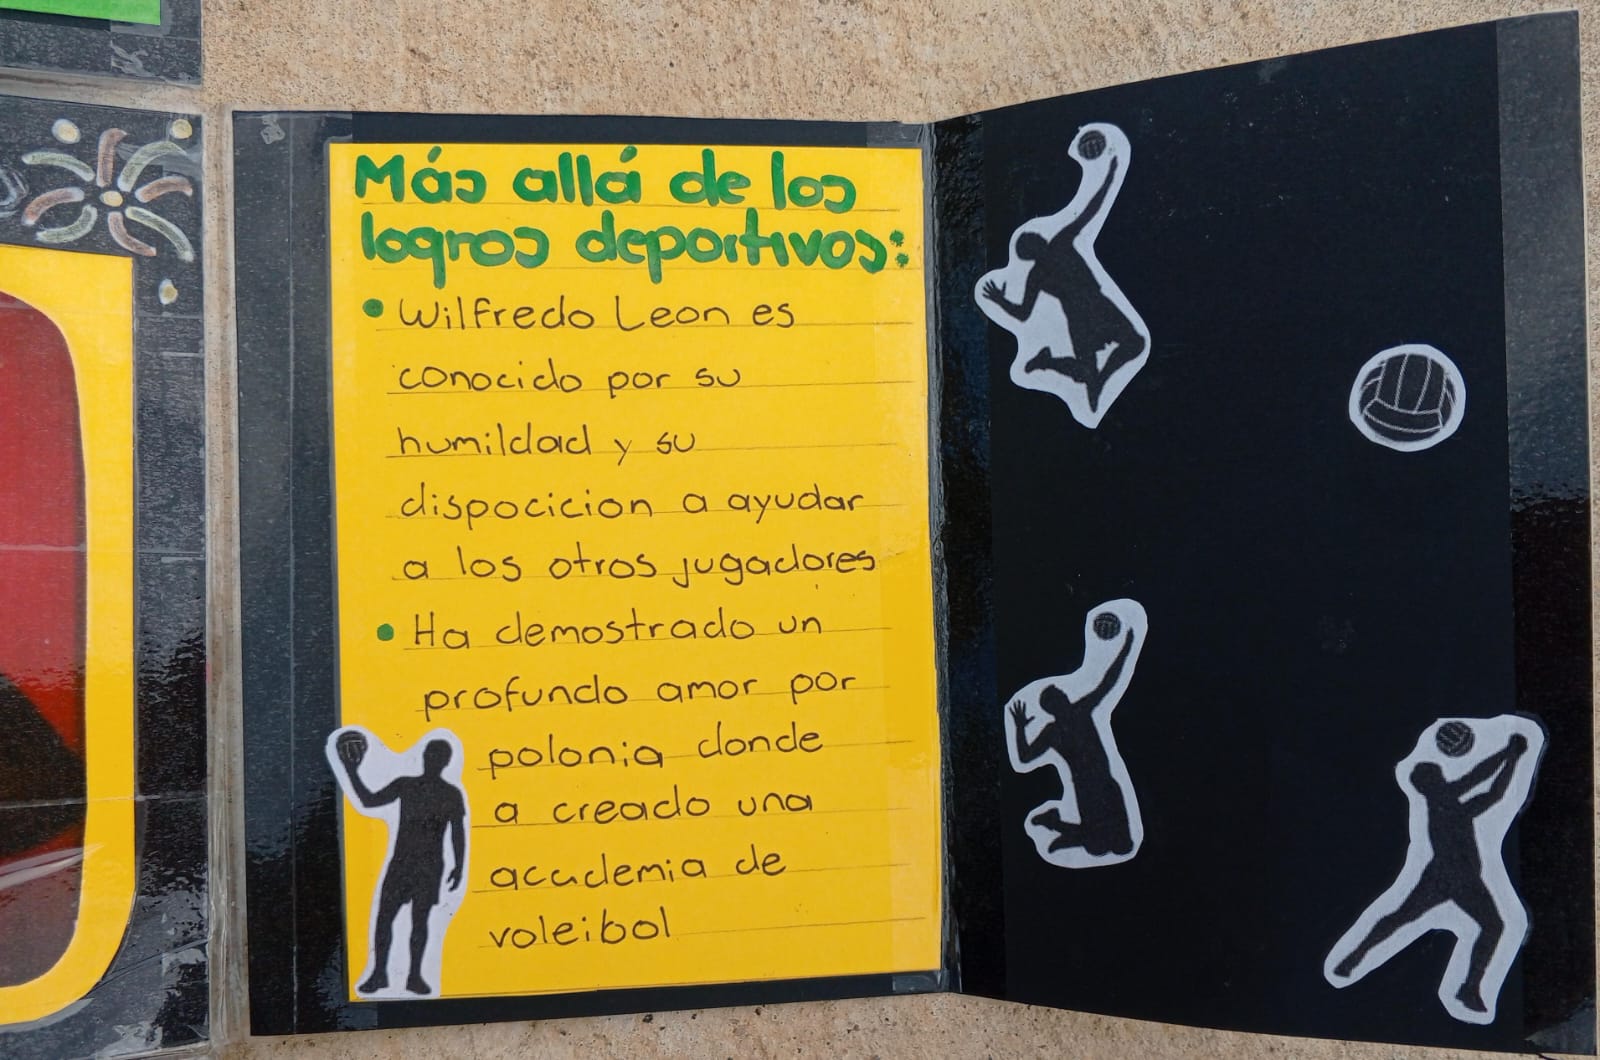 Más allá de los
logros deportivos:
• Wilfredo Leon es
conocido por su
humildad y su
dispocicion a ayudar
a los otros jugadores
• Ha demostrado un
profundo amor por
polonia donde
a creado una
academia de
voleibol